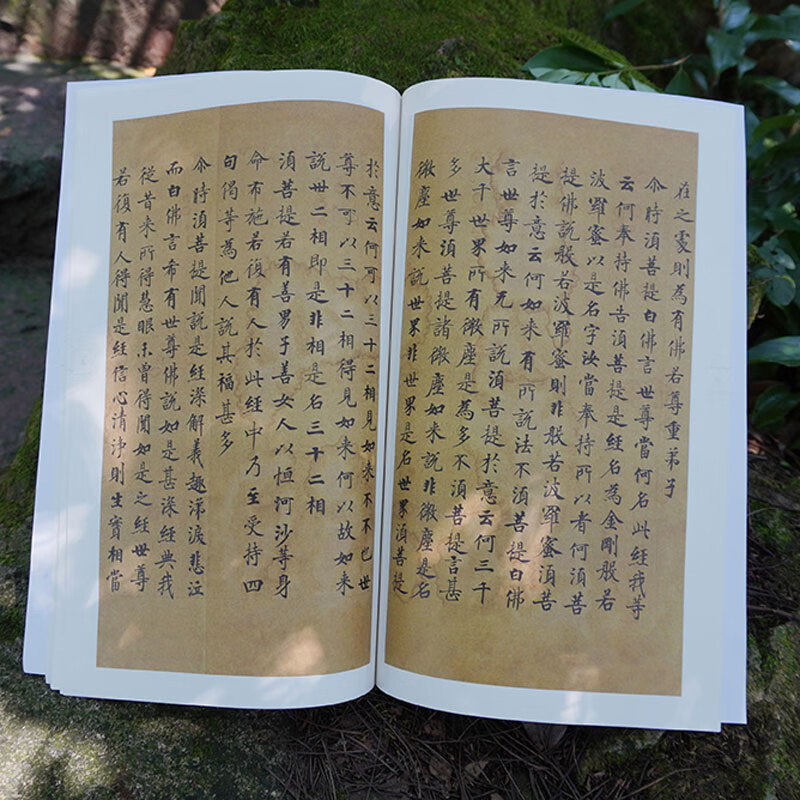 在之處則為有佛若尊重弟子
尒時湏菩提白佛言世尊當何名此經我等
云何奉持佛告湏菩提是經名為金剛般若
波羅蜜以是名字汝當奉持所以者何湏菩
提佛說般若波羅蜜則非般若波羅蜜湏菩
提於意云何如来有所說法不湏菩提白佛
言世尊如来无所說湏菩提於意云何三千
大千世界所有微塵是為多不湏菩提言甚
多世尊湏菩提諸微塵如来說非微塵是名
微塵如来說世界非世界是名世界湏菩提
於意云何可以三十二相見如来不不也世
尊不可以三十二相得見如来何以故如来
說世二相即是非相是名三十二相
湏菩提若有善男子善女人以恒河沙等身
命布施若復有人於此經中乃至受持四
句偈等為他人說其福甚多
尒時湏菩提聞說是經深解義趣涕淚悲泣
而白佛言希有世尊佛說如是甚深經典我
從昔来所得慧眼未曾得聞如是之經世尊
若復有人得聞是經信心清淨則生實相當